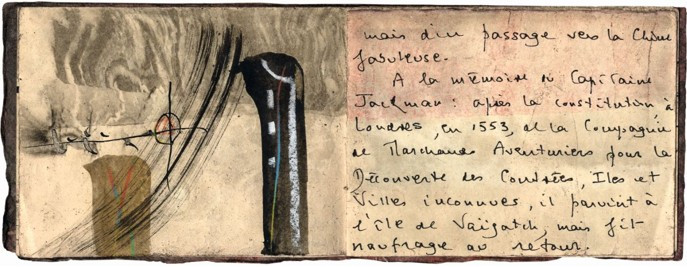 mais d'un passage vers la Chine
fabuleuse.
A la mémoire du Capitaine
Jackman : après la constitution à
Londres, en 1553, de la Compagnie
de Marchands Aventuriers pour la
Découverte des Contrées, Iles et
Villes inconnues, il parvint à
l'île de Vaïgatch, mais fit
naufrage au retour.